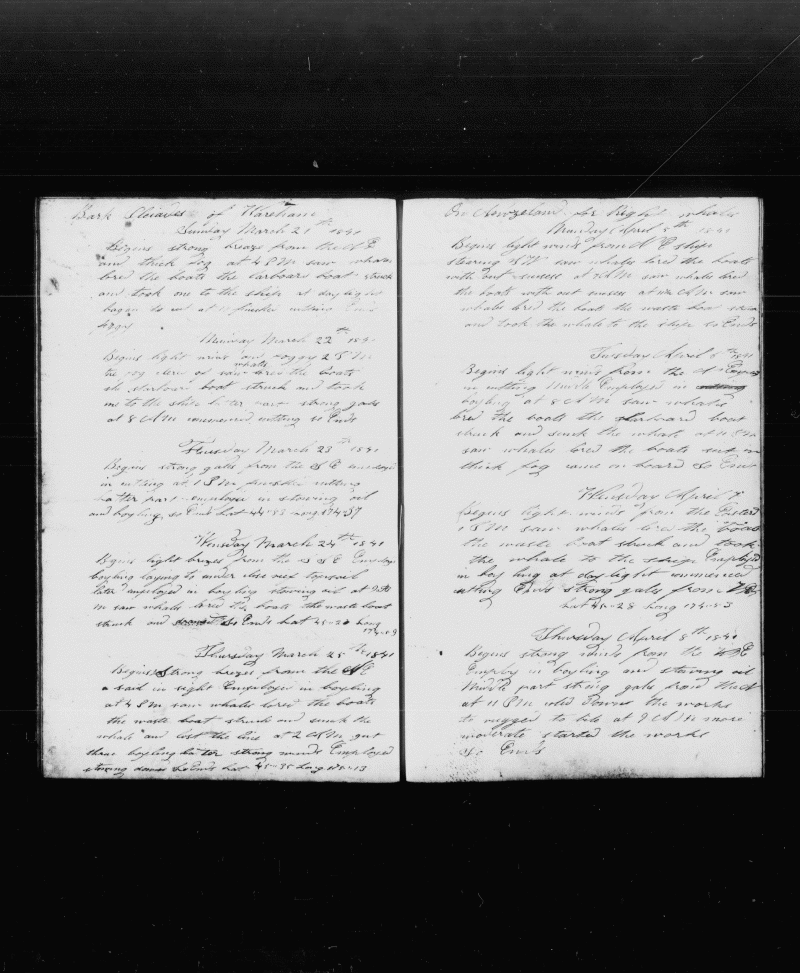 Bark Pleiades of Wareham
Sunday March 21th 1841
Begins strong brezes from the N E
and thick fog at 4 P M saw whales
lored the boats the larboard boat struck
and took one to the ship at daylight
began to cut at 11 finished cutting Ends
foggy
Munday March 22th 184
Begins light wins and foggy 2 P M
the fog clerd of saw whales lored the boats
the starbord boat struck and took
one to the ship latter part strong gales
at 8 A M commenced cutting so Ends
Thusday March 23th 1841
Begins strong gales from the S E employed
in cutting at 1 P M finished cutting
latter part employed in stowing oil
and boyling so Ends Lat 44-53 Long 174-37
Wensday March 24th 1841
Begins light brezes from the S E Employe
boyling laying to under close reef topsail
later employed in boyling stowing oil at 9 A
M saw whales lored the boats the waste boat
struck and So Ends Lat 45-20 Long
174-59
Thursday March 25th 1841
Begins Strong brezes from the N E
a sail in sight Employed in boyling
at 4 P M saw whales lored the boats
the waste boat struck and sunk the
whale and lost the line at 2 A M got
threw boyling latter strong winds Employed
stowing down So Ends Lat 45-35 Long 175-13
On Newzeland for Right whales
Munday April 5th 1841
Begins light winds from N E ship
stearing S W saw whales lored the boats
without sucsess at A M saw whales lored
the boats with out sucsess at A M saw
whales lored the boats the waste boat struck
and took the whale to the ship so Ends
Tusday April 6th 1841
Begins light winds from the N Employed
in cutting Middle Employed in
boyling at 8 A M saw whales
lored the boats the starboard boat
struck and sunk the whale at 11 A M
saw whales lored the boats set in
thick fog came on board So Ends
Whusday April 7
Begins light winds from the Easterd
1 P M saw whales lored the boats
the waste boat struck and took
the whale to the ship Employed
in boyling at day light commenced
cutting Ends strong gales from
Lat 45-28 Long 174-53
Thursday April 8th 1841
Begins strong winds from the N E
Employ in boyling and stowing oil
Middle part strong gales from thick
at 11 P M Down the works
to rugged to bile at 9 A M more
moderate started the works
So Ends